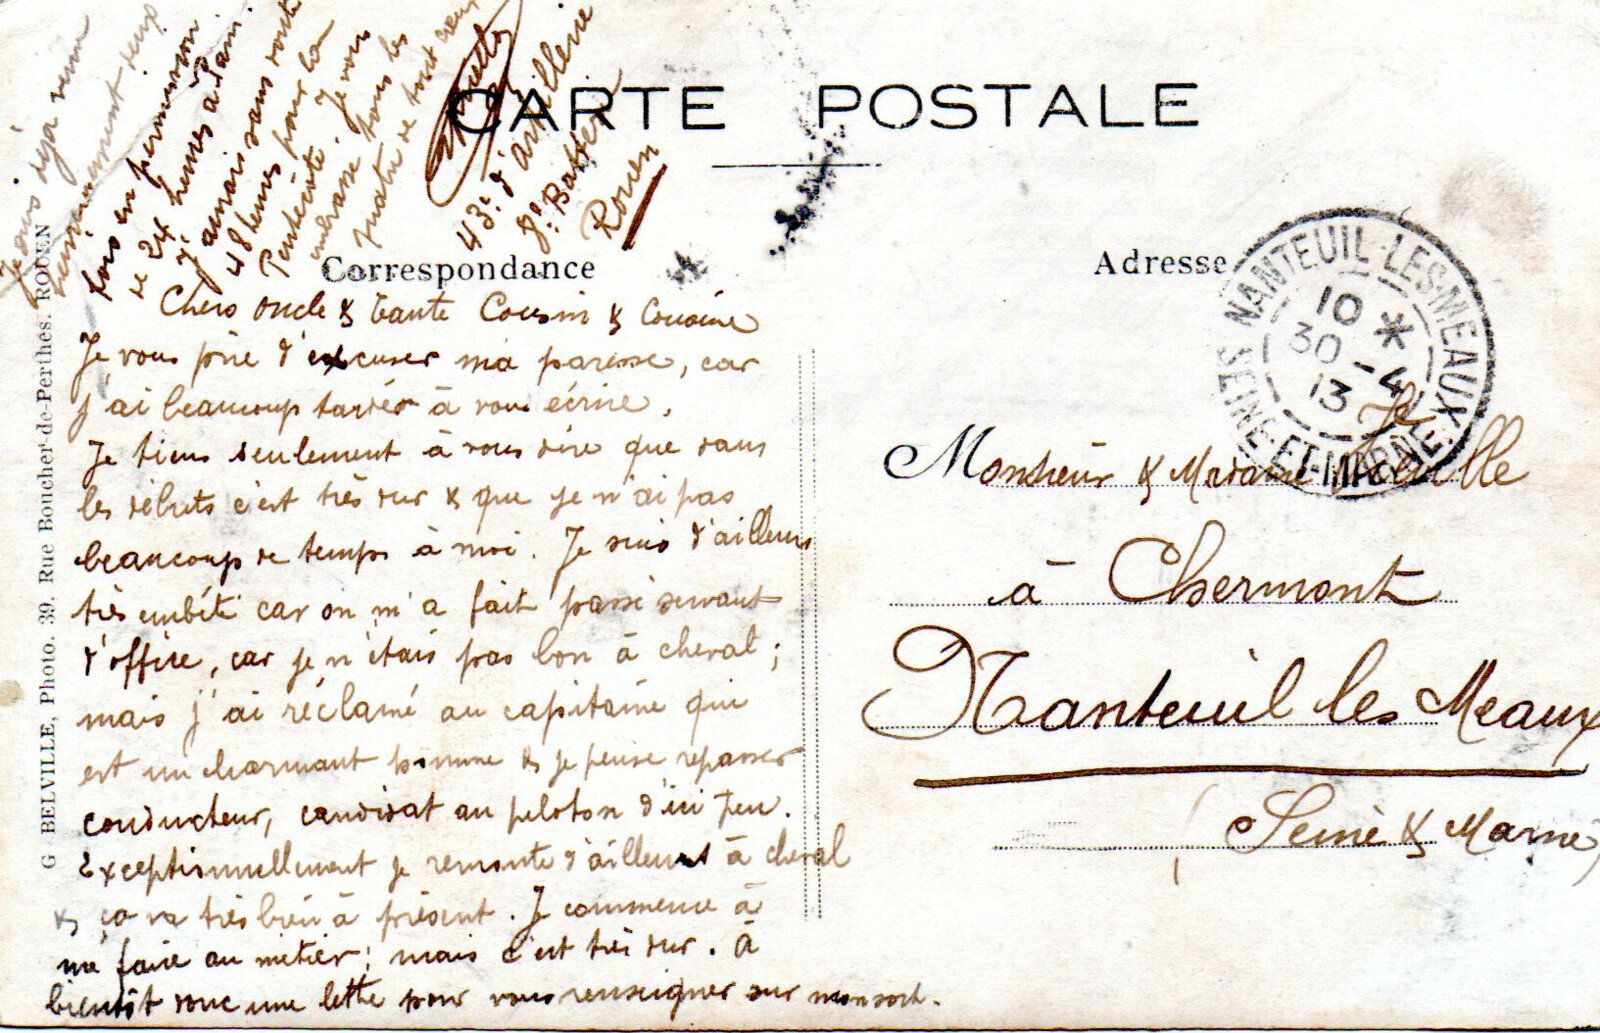 CARTE POSTALE
Correspondance
Chers oncle & tante Cousin & Cousine
Je vous prie d'excuser ma paresse, car
j'ai beaucoup tardé à vous écrire.
Je tiens seulement à vous dire que dans
les débuts c'est très dur & que je n'ai pas
beaucoup de temps à moi. Je suis d'ailleurs
très embêté car on m'a fait passé servant
d'office, car je n'étais pas bon à cheval ;
mais j'ai réclamé au capitaine qui
est un charmant homme & je pense repasser
conducteur, candidat au peloton d'ici peu.
Exceptionnellement je remonte d'ailleurs à cheval
& ça va très bien à présent. Je commence à
me faire au métier ; mais c'est très dur. à
bientôt donc une lettre pour vous renseigner sur mon sort.
Je suis déjà venu
deux
fois en permission
de 24 heures à Paris.
J'aurai sans doute
48 heures pour la
Pentecôte. Je vous
embrasse tous les
quatre de tout cœur
43e d'artillerie
8e Batterie
Rouen
Adresse
NANTEUIL-LES-MEAUX
SEINE-ET-MARNE
10 *
30 -4
13
Monsieur & Madame
à Chermont
Nanteuil les Meaux
(Seine & Marne)
G. BELVILLE, Photo. 39, Rue Boucher-de-Perthes. ROUEN